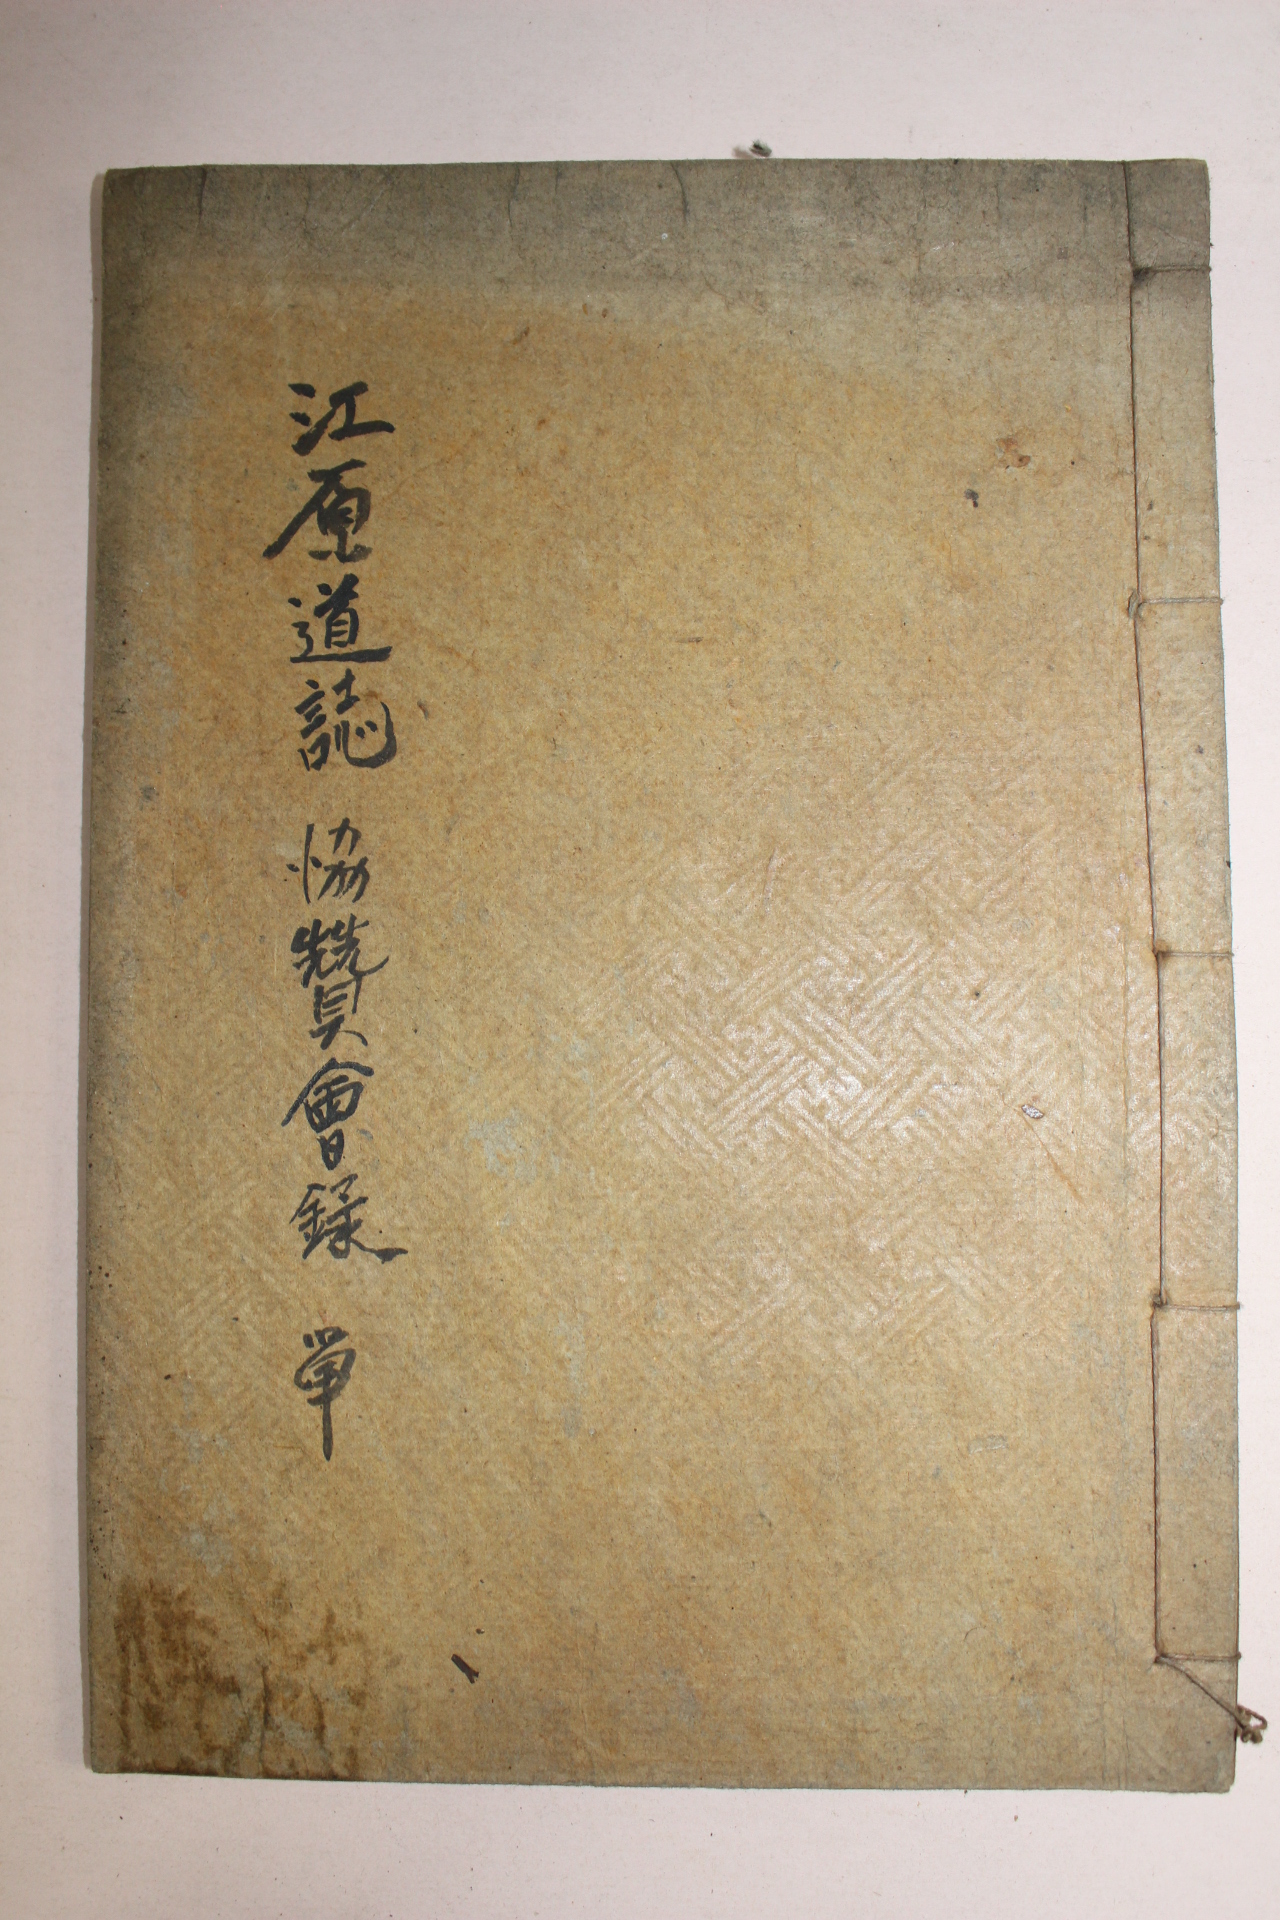 江原道誌 恊贊會錄 單